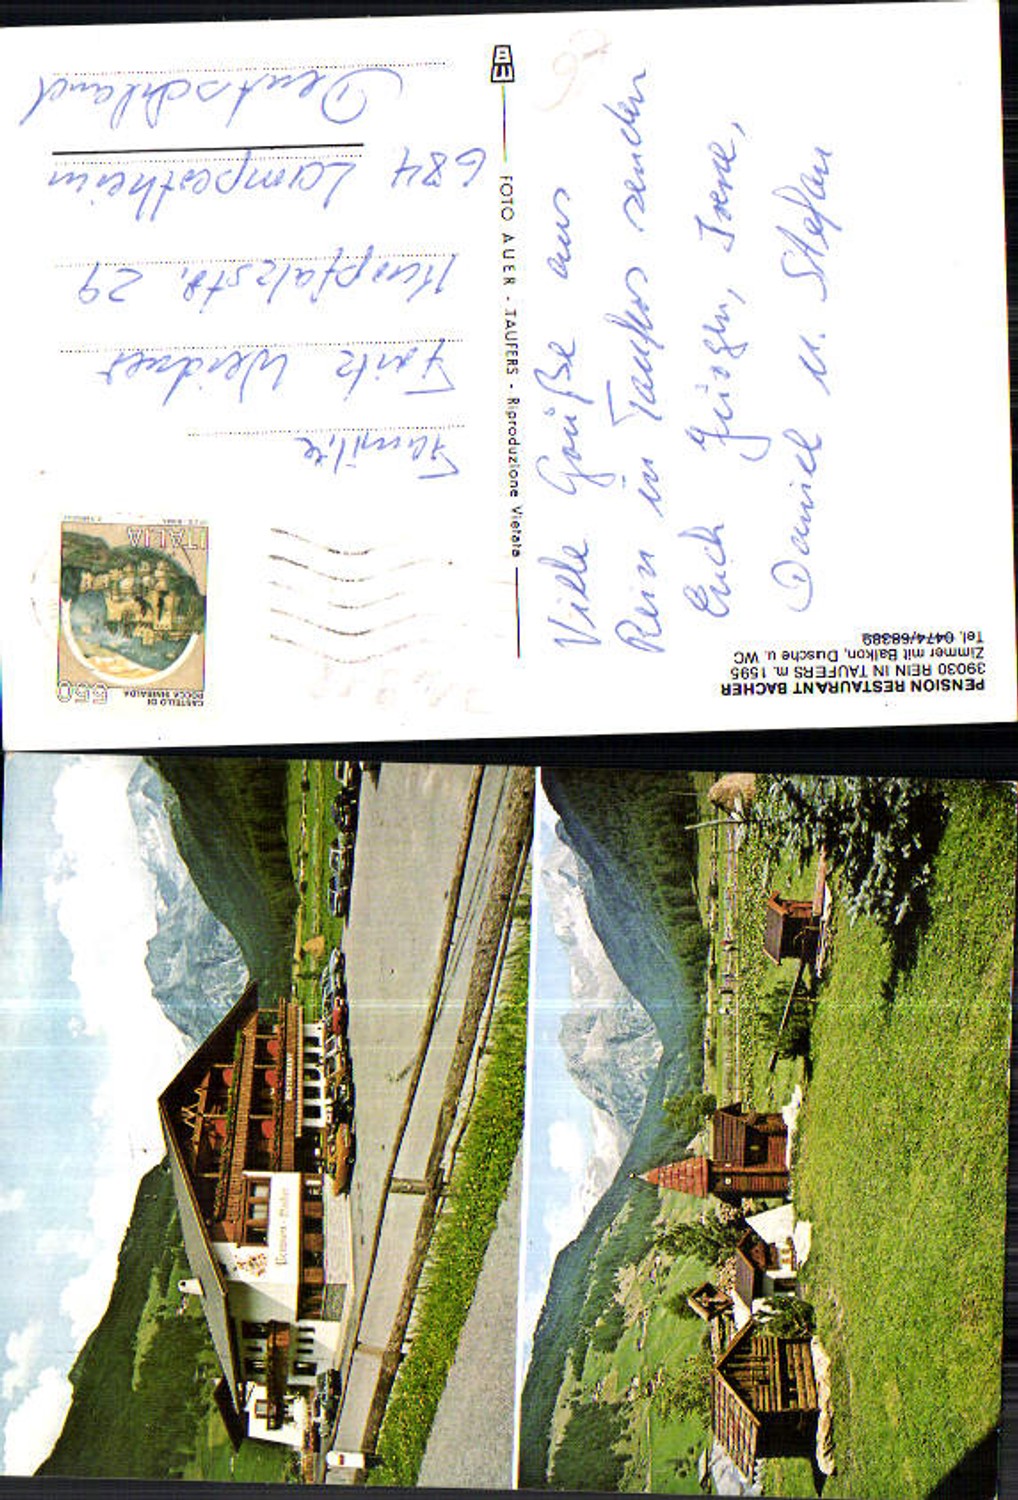 PENSION RESTAURANT BACHER
39030 REIN IN TAUFERS m. 1595
Zimmer mit Balkon, Dusche u. WC
Tel. 0474/68389
Viele Grüße aus
Rein in Taufers senden
Euch Jürgen, Irene,
Daniel u. Stefan
FOTO AUER - TAUFERS - Riproduzione Vietata
CASTELLO DI
ROCCA SINIBALDA
650
ITALIA
Familie
Fritz Weidner
Kurpfalzstr. 29
684 Lampertheim
Deutschland
RESTAURANT
Pension - Bacher